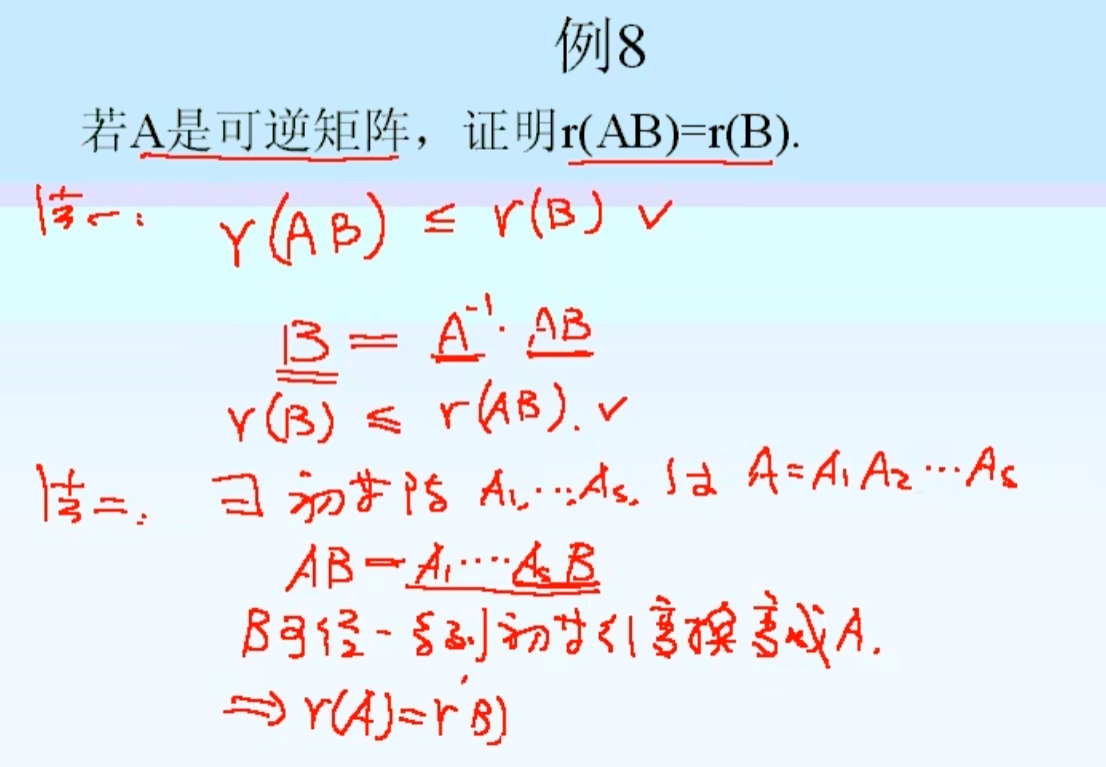 例8
若A是可逆矩阵，证明r(AB)=r(B).
法一: r(AB) ≤ r(B) ✓
B = A⁻¹· AB
r(B) ≤ r(AB). ✓
法二. ∃ 初等阵 A₁,…,Aₛ. 使 A=A₁A₂…Aₛ
AB=A₁…AₛB
B可经一系列初等行变换变成A.
⇒ r(A)=r(B)